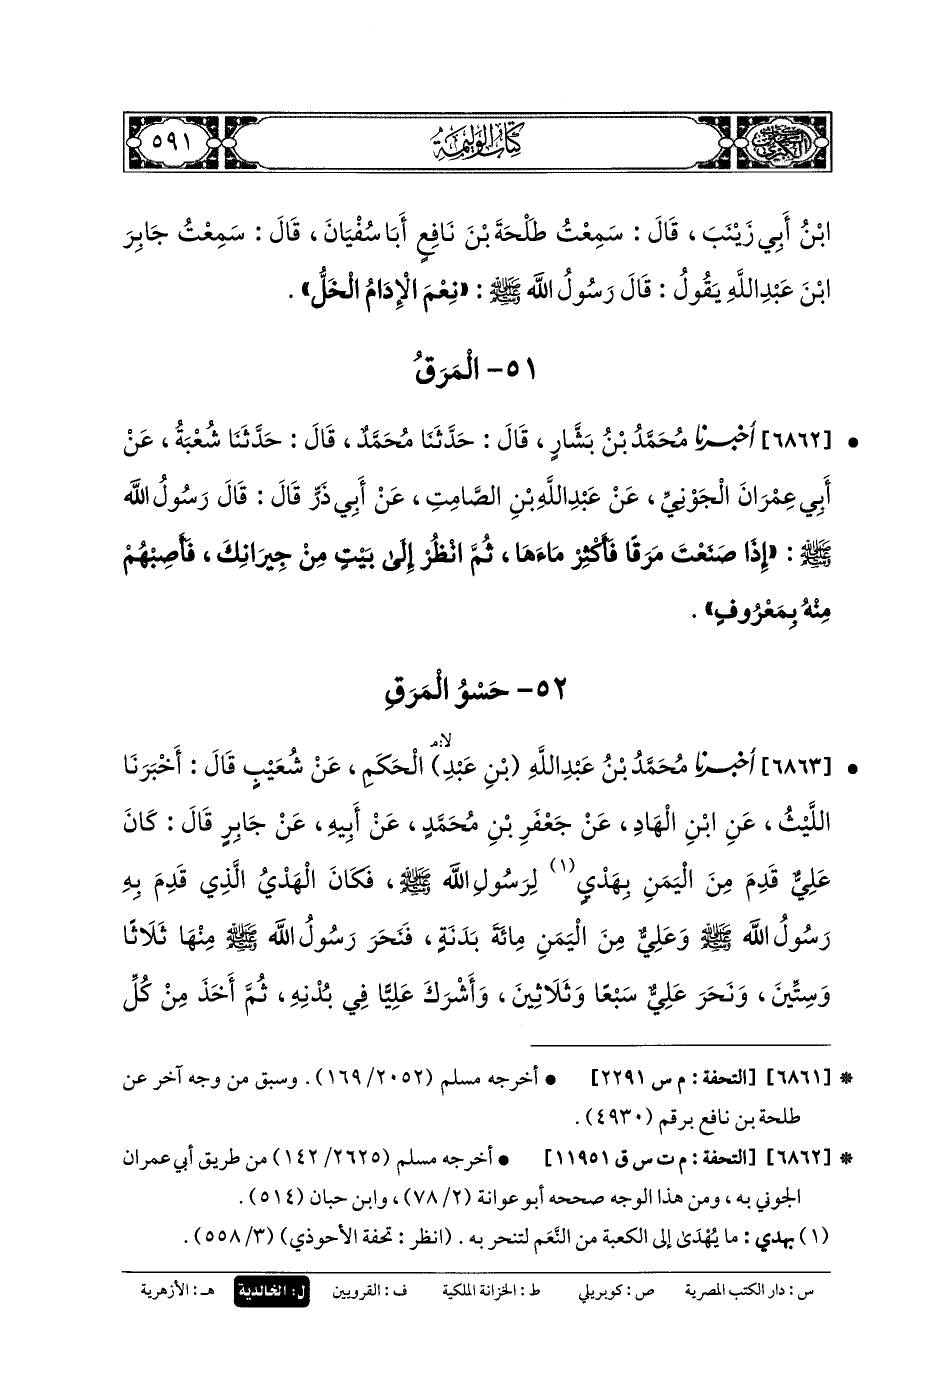 كتاب الوليمة
٥٩١
ابْنُ أَبِي زَيْنَبَ ، قَالَ : سَمِعْتُ طَلْحَةَ بْنَ نَافِعٍ أَبَا سُفْيَانَ ، قَالَ : سَمِعْتُ جَابِرَ
ابْنَ عَبْدِاللَّهِ يَقُولُ : قَالَ رَسُولُ اللَّه ﷺ : «نِعْمَ الْإِدَامُ الْخَلُّ» .
٥١- الْمَرَقُ
• [٦٨٦٢] أَخْبَرَنَا مُحَمَّدُ بْنُ بَشَّارٍ ، قَالَ : حَدَّثَنَا مُحَمَّدٌ ، قَالَ : حَدَّثَنَا شُعْبَةُ ، عَنْ
أَبِي عِمْرَانَ الْجَوْنِيِّ ، عَنْ عَبْدِاللَّهِ بْنِ الصَّامِتِ ، عَنْ أَبِي ذَرٍّ قَالَ : قَالَ رَسُولُ اللَّه
ﷺ : «إِذَا صَنَعْتَ مَرَقًا فَأَكْثِرْ مَاءَهَا ، ثُمَّ انْظُرْ إِلَى بَيْتٍ مِنْ جِيرَانِكَ ، فَأَصِبْهُمْ
مِنْهُ بِمَعْرُوفٍ» .
٥٢- حَسْوُ الْمَرَقِ
• [٦٨٦٣] أَخْبَرَنَا مُحَمَّدُ بْنُ عَبْدِاللَّهِ (بْنِ عَبْدِ) الْحَكَمِ ، عَنْ شُعَيْبٍ قَالَ : أَخْبَرَنَا
اللَّيْثُ ، عَنِ ابْنِ الْهَادِ ، عَنْ جَعْفَرِ بْنِ مُحَمَّدٍ ، عَنْ أَبِيهِ ، عَنْ جَابِرٍ قَالَ : كَانَ
عَلِيٌّ قَدِمَ مِنَ الْيَمَنِ بِهَدْيٍ(١) لِرَسُولِ اللَّه ﷺ ، فَكَانَ الْهَدْيُ الَّذِي قَدِمَ بِهِ
رَسُولُ اللَّه ﷺ وَعَلِيٌّ مِنَ الْيَمَنِ مِائَةَ بَدَنَةٍ ، فَنَحَرَ رَسُولُ اللَّه ﷺ مِنْهَا ثَلَاثًا
وَسِتِّينَ ، وَنَحَرَ عَلِيٌّ سَبْعًا وَثَلَاثِينَ ، وَأَشْرَكَ عَلِيًّا فِي بُدْنِهِ ، ثُمَّ أَخَذَ مِنْ كُلِّ
* [٦٨٦١] [التحفة : م س ٢٢٩١] • أخرجه مسلم (٢٠٥٢/ ١٦٩) . وسبق من وجه آخر عن
طلحة بن نافع برقم (٤٩٣٠) .
* [٦٨٦٢] [التحفة : م ت س ق ١١٩٥١] • أخرجه مسلم (٢٦٢٥/ ١٤٢) من طريق أبي عمران
الجوني به ، ومن هذا الوجه صححه أبو عوانة (٢/ ٧٨) ، وابن حبان (٥١٤) .
(١) بهدي : ما يُهْدَى إلى الكعبة من النَّعَم لتنحر به . (انظر : تحفة الأحوذي) (٣/ ٥٥٨) .
س : دار الكتب المصرية ص : كوبريلي ط : الخزانة الملكية ف : القرويين ل : الخالدية هـ : الأزهرية